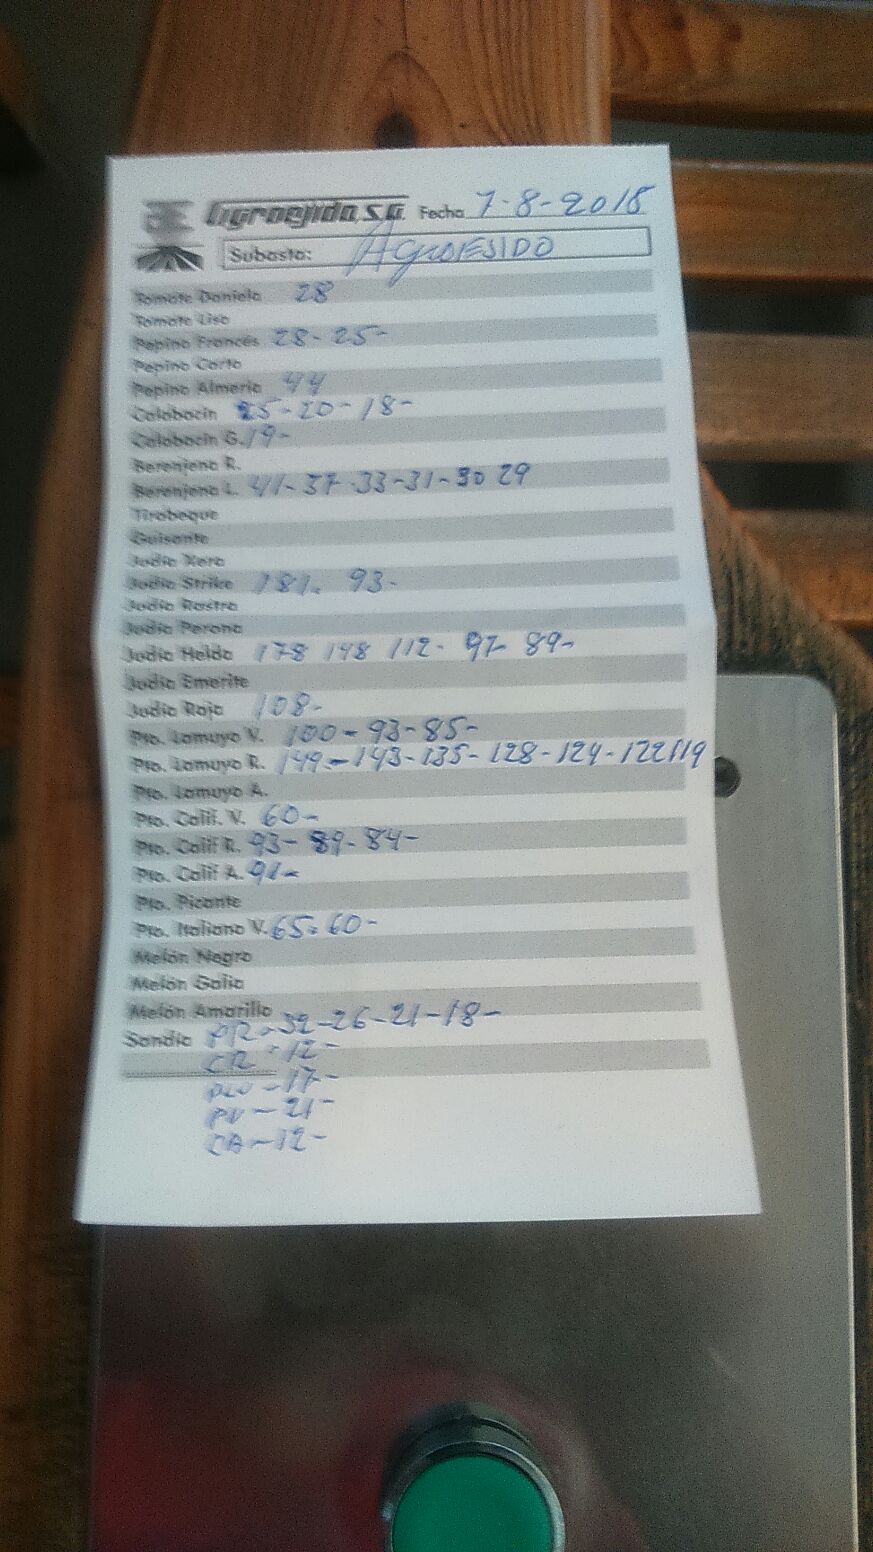 Agroejido, S.A. Fecha 7-8-2018
Subasta: AGROEJIDO
Tomate Daniela 28
Tomate Liso
Pepino Francés 28-25-
Pepino Corto
Pepino Almería 44
Calabacín 25-20-18-
Calabacín G. 19-
Berenjena R.
Berenjena L. 41-37-33-31-30 29
Tirabeque
Guisante
Judía Xera
Judía Strike 181. 93-
Judía Rastra
Judía Perona
Judía Helda 178 148 112- 97- 89-
Judía Emerite
Judía Roja 108-
Pto. Lamuyo V. 100-93-85-
Pto. Lamuyo R. 149-143-135-128-124-122119
Pto. Lamuyo A.
Pto. Calif. V. 60-
Pto. Calif R. 93-89-84-
Pto. Calif A. 91-
Pto. Picante
Pto. Italiano V. 65-60-
Melón Negro
Melón Galia
Melón Amarillo
Sandía PR-32-26-21-18-
CR-12-
-17-
PV-21-
CB-12-